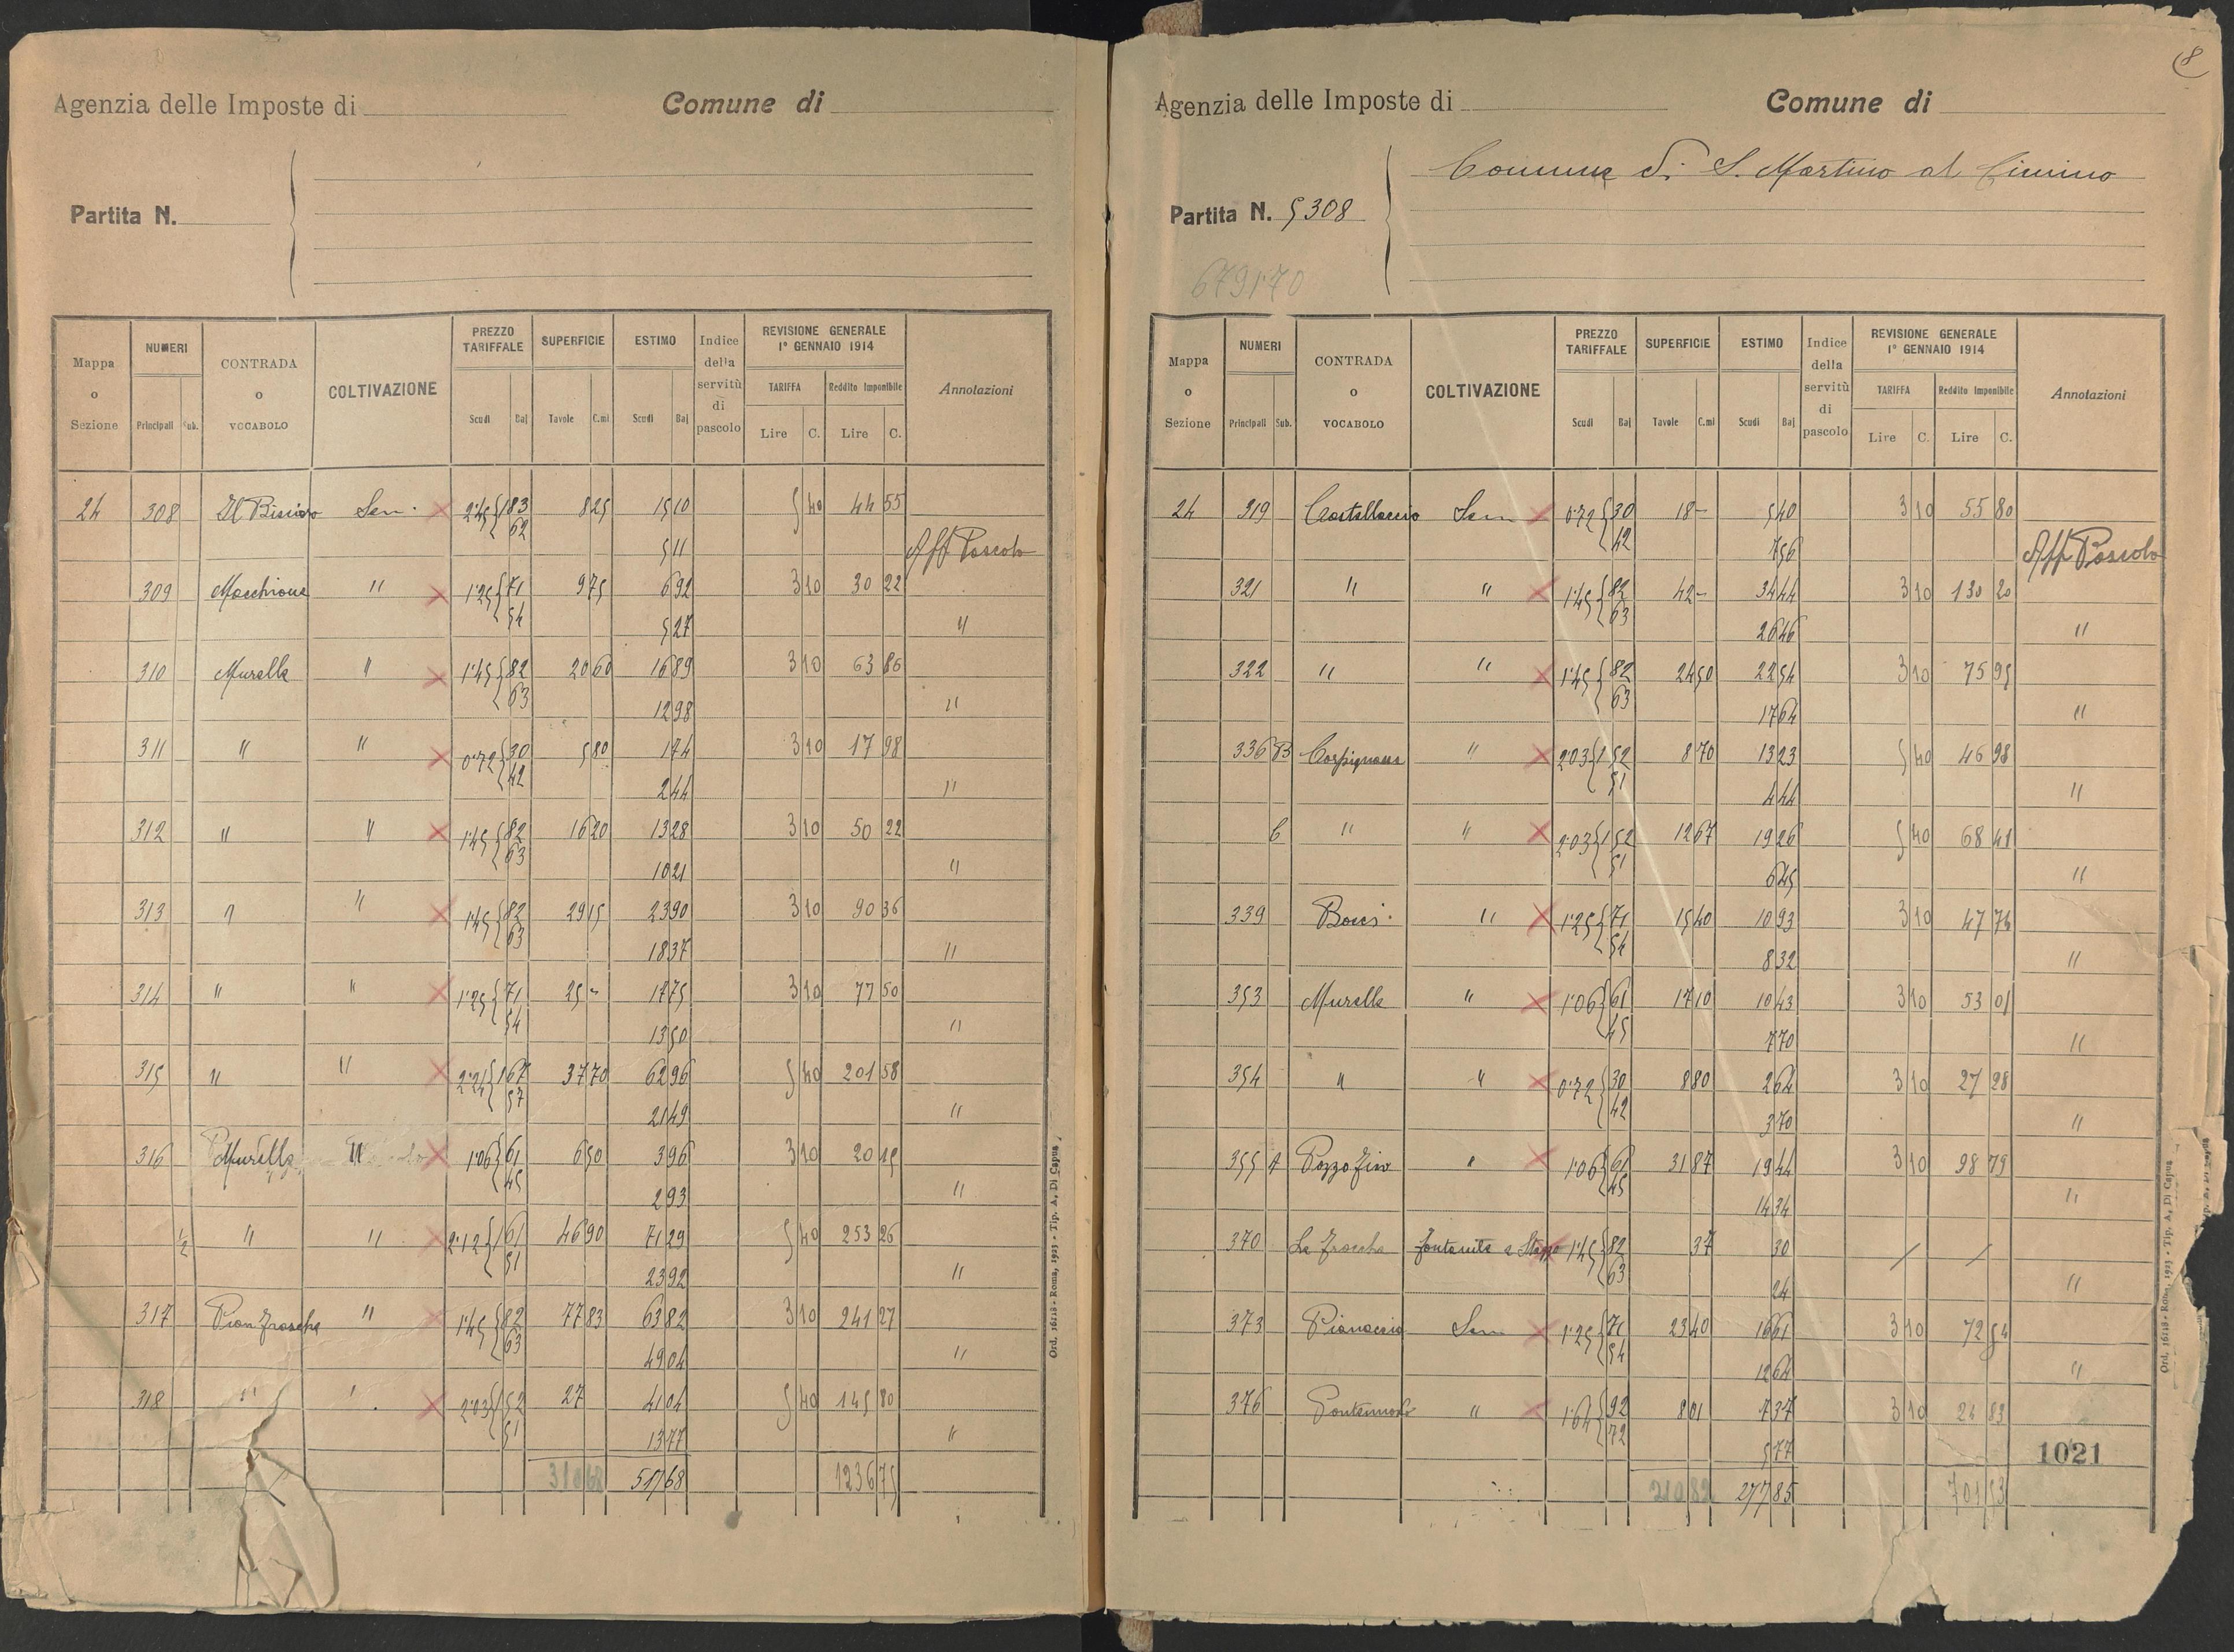 Agenzia delle Imposte di Comune di
Partita N.
Mappa o Sezione NUMERI Principali Sub. CONTRADA o VOCABOLO COLTIVAZIONE PREZZO TARIFFALE Scudi Baj SUPERFICIE Tavole C.mi ESTIMO Scudi Baj Indice della servitù di pascolo REVISIONE GENERALE 1° GENNAIO 1914 TARIFFA Lire C. Reddito Imponibile Lire C. Annotazioni
24 308 Il Sem. 2.45 1 83 8 25 15 10 5 40 44 55
62 5 11 Aff Pascolo
309 Macchione " 1.25 71 9 75 6 92 3 10 30 22
54 5 27 "
310 Murelle " 1.45 82 20 60 16 89 3 10 63 86
63 12 98 "
311 " " 0.72 30 5 80 1 74 3 10 17 98
42 2 44 "
312 " " 1.45 82 16 20 13 28 3 10 50 22
63 10 21 "
313 " " 1.45 82 29 15 23 90 3 10 90 36
63 18 37 "
314 " " 1.25 71 25 - 17 75 3 10 77 50
54 13 50 "
315 " " 2.24 1 67 37 70 62 96 5 40 201 58
57 21 49 "
316 Murelle " 1.06 61 6 50 3 96 3 10 20 15
45 2 93 "
1/2 " " 2.12 1 61 46 90 71 29 5 40 253 26
51 23 92 "
317 Pian Frasche " 1.45 82 77 83 63 82 3 10 241 27
63 49 04 "
318 " " 2.03 1 52 27 41 04 5 40 145 80
51 13 77 "
310 68 517 68 1236 75
Ord. 16118 - Roma, 1923 - Tip. A. Di Capua
8
Agenzia delle Imposte di Comune di
Comune di S. Martino al Cimino
Partita N. 5308
679170
Mappa o Sezione NUMERI Principali Sub. CONTRADA o VOCABOLO COLTIVAZIONE PREZZO TARIFFALE Scudi Baj SUPERFICIE Tavole C.mi ESTIMO Scudi Baj Indice della servitù di pascolo REVISIONE GENERALE 1° GENNAIO 1914 TARIFFA Lire C. Reddito Imponibile Lire C. Annotazioni
24 319 Castellaccio Sem 0.72 30 18 - 5 40 3 10 55 80
42 7 56 Aff Pascolo
321 " " 1.45 82 42 - 34 44 3 10 130 20
63 26 46 "
322 " " 1.45 82 24 50 22 54 3 10 75 95
63 17 64 "
336 B Carpignana " 2.03 1 52 8 70 13 23 5 40 46 98
51 4 44 "
C " " 2.03 1 52 12 67 19 26 5 40 68 41
51 6 45 "
339 " 1.25 71 15 40 10 93 3 10 47 74
54 8 32 "
353 Murelle " 1.06 61 17 10 10 43 3 10 53 01
45 7 70 "
354 " " 0.72 30 8 80 2 64 3 10 27 28
42 3 70 "
355 A Pozzo " 1.06 61 31 87 19 44 3 10 98 79
45 14 34 "
370 Le Frasche fontanile e 1.45 82 37 30 / /
63 24 "
373 Sem 1.25 71 23 40 16 61 3 10 72 54
54 12 64 "
376 " 1.64 92 8 01 7 37 3 10 24 83
72 5 77
1021
210 82 277 85 701 53
Ord. 16118 - Roma, 1923 - Tip. A. Di Capua